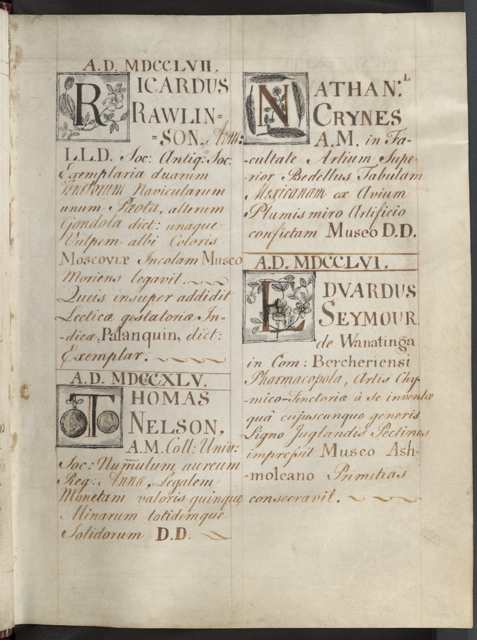 A.D. MDCCLVII.
RICARDUS
RAWLIN-
=SON, Arm:
L.L.D. Soc: Antiq: Soc:
Exemplaria duarum
Venetorum Navicularum
unum Pæota, alterum
Gondola dict: unaque
Vulpem albi Coloris
Moscoviæ Incolam Museo
Moriens legavit.
Queis insuper addidit
Lecticæ gestatoriæ In-
-dicæ, Palanquin, dict:
Exemplar.
A.D. MDCCXLV.
THOMAS
NELSON,
A.M. Coll: Univ:
Soc: Num̅ulum aureum
Reg: Annæ, Legalem
Monetam valoris quinque
Minarum totidemque
Solidorum D.D.
NATHAN:L
CRYNES
A.M. in Fa-
-cultate Artium Supe-
rior Bedellus Tabulam
Mexicanam ex Avium
Plumis miro Artificio
confictam Museo D.D.
A.D. MDCCLVI.
EDVARDUS
SEYMOUR,
de Wanatinga
in Com: Bercheriensi
Pharmacopola, Artis Chy-
-mico-Tinctoriæ à se inventæ
quâ cujuscunque generis
Ligno Juglandis Pectines
impressit Musco Ash-
-moleano Primitias
consecravit.